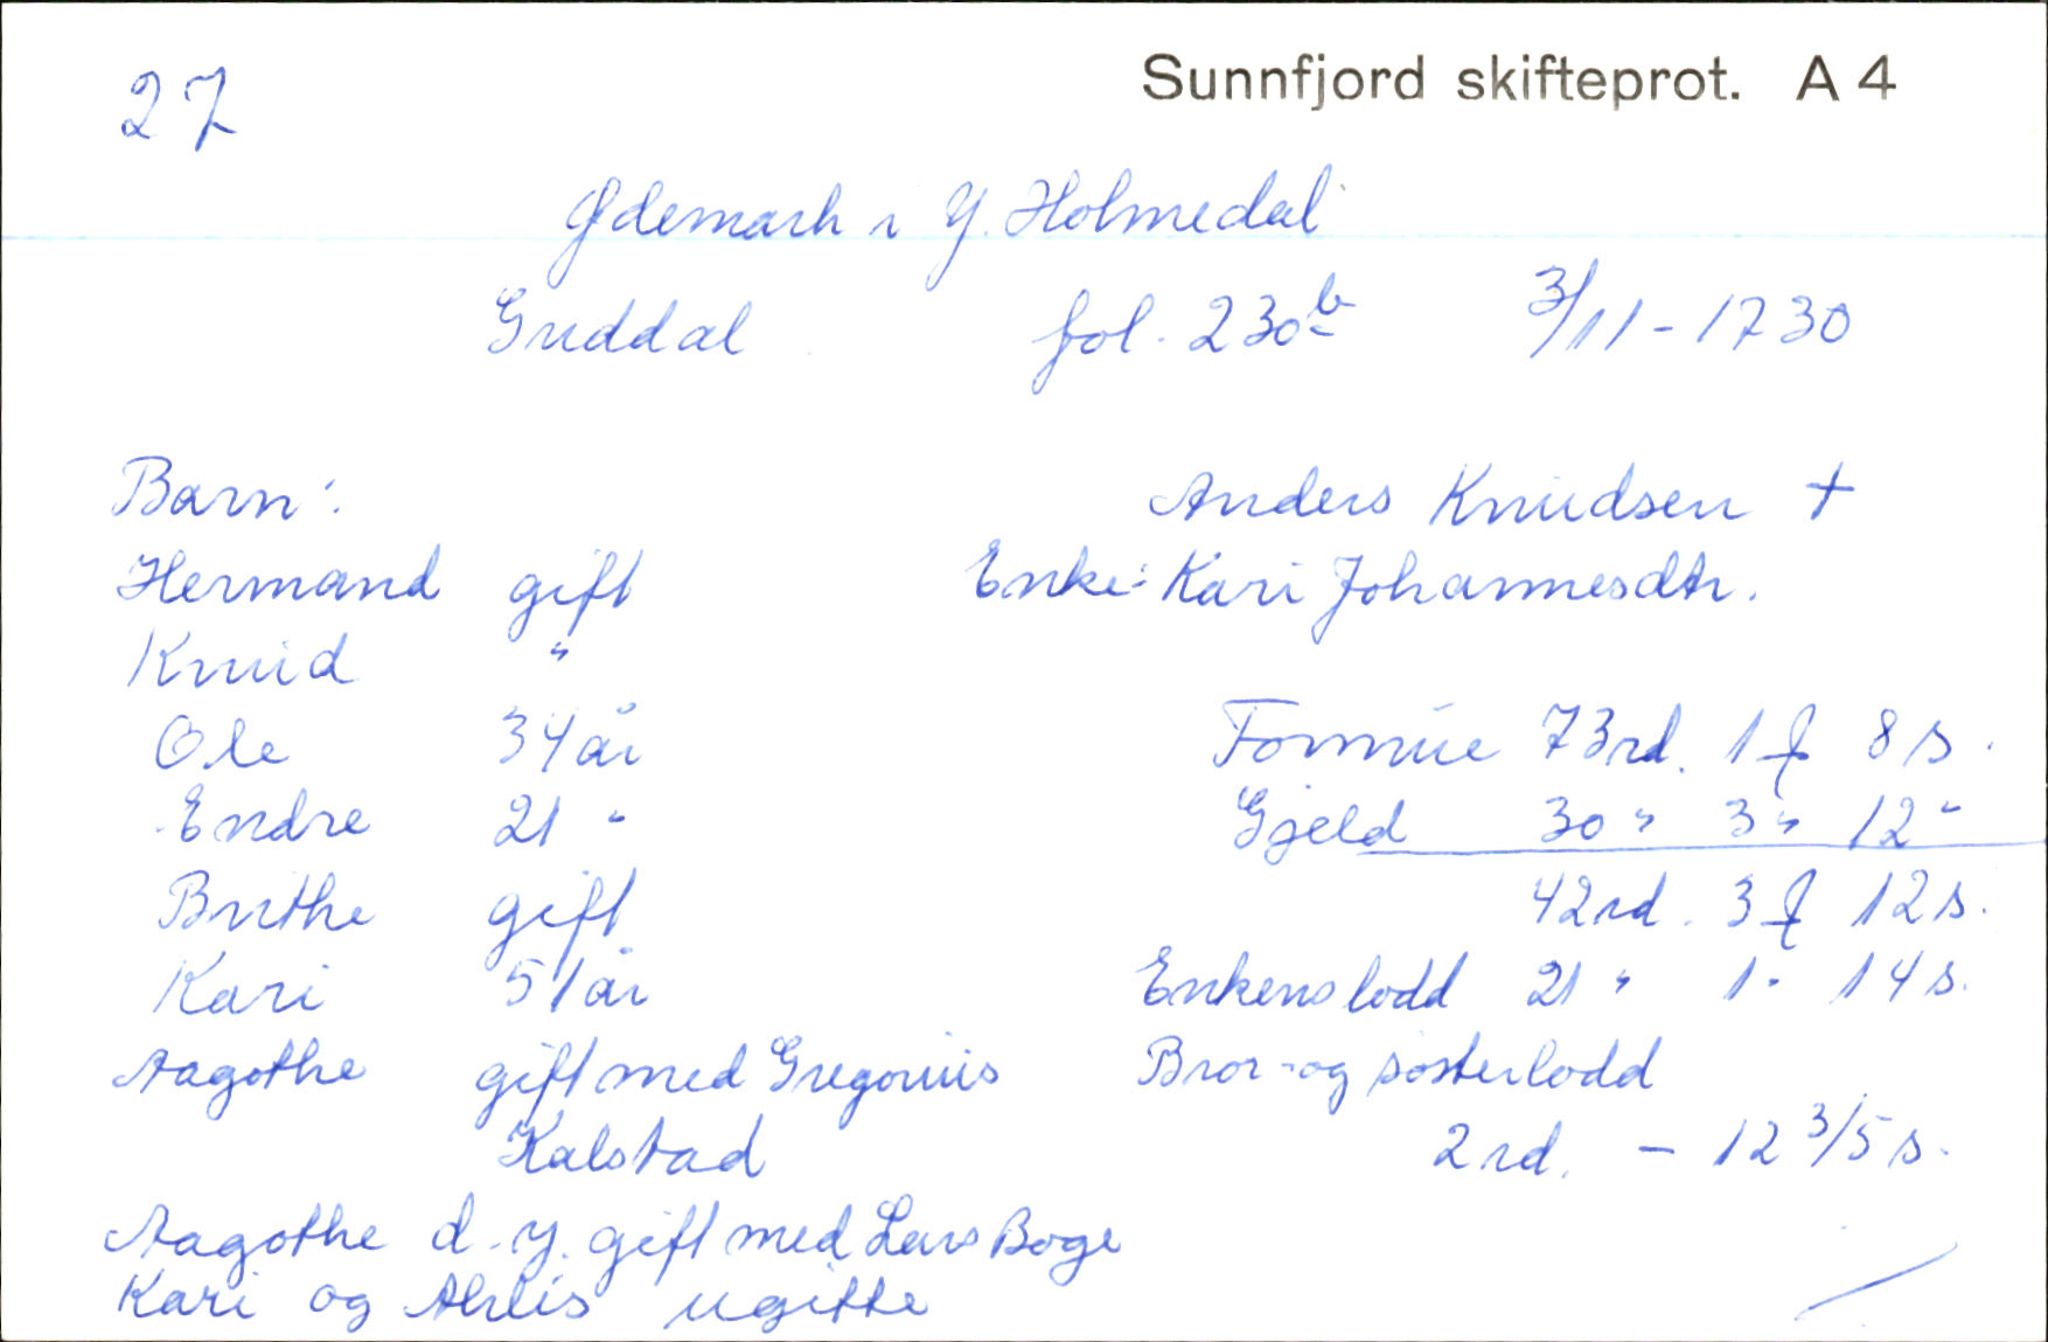 27
Sunnfjord skifteprot. A 4
Ydemark i Y. Holmedal
Guddal fol. 230b 3/11-1730
Barn: Anders Knudsen +
Hermand gift Enke: Kari Johannesdtr.
Knud "
Ole 34 år Formue 73 rd. 1 ƒ 8 s.
Endre 21 " Gjeld 30 " 3 " 12 "
Brithe gift 42 rd. 3 ƒ 12 s.
Kari 51 år Enkens lodd 21 " 1 " 14 s.
Aagothe gift med Gregorius Bror- og søsterlodd
Kalstad 2 rd. - 12 3/5 s.
Aagothe d.y. gift med Lars Boge
Kari og ugifte